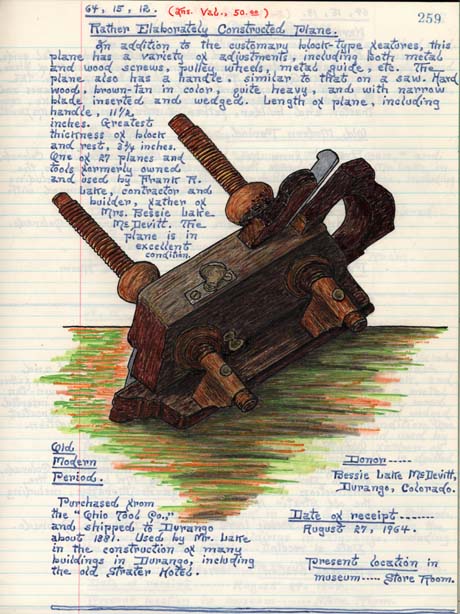 64, 15, 12. (Ins. Val., 50.00)
259
Rather Elaborately Constructed Plane.
In addition to the customary block-type features, this
plane has a variety of adjustments, including both metal
and wood screws, pulley wheels, metal guide, etc. The
plane also has a handle, similar to that on a saw. Hard
wood, brown-tan in color, quite heavy, and with narrow
blade inserted and wedged. Length of plane, including
handle, 11½
inches. Greatest
thickness of block
and rest, inches.
One of 27 planes and
tools formerly owned
and used by Frank R.
Lake, contractor and
builder, father of
Mrs. Bessie Lake
McDevitt. The
plane is in
excellent
condition.
Old
Modern
Period.
Purchased from
the "Ohio Tool Co.,"
and shipped to Durango
about 1881. Used by Mr. Lake
in the construction of many
buildings in Durango, including
the old Strater Hotel.
Donor-----
Bessie Lake McDevitt,
Durango, Colorado.
Date of receipt-------
August 27, 1964.
Present location in
museum----- Store Room.